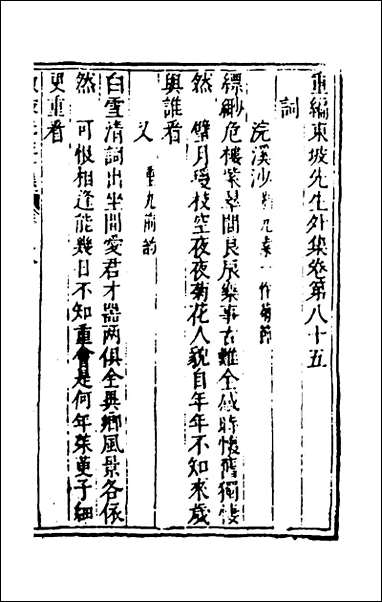 重編東坡先生外集卷第八十五
詞
浣溪沙 九 一作菊節
縹緲危樓紫翠間良辰樂事古難全感時懷舊獨悽
然 璧月瓊枝空夜夜菊花人貌自年年不知來歲
與誰看
又 重九前韵
白雪清詞出坐間愛君才器兩俱全異鄉風景各依
然 可恨相逢能幾日不知重會是何年茱萸子細
更重看